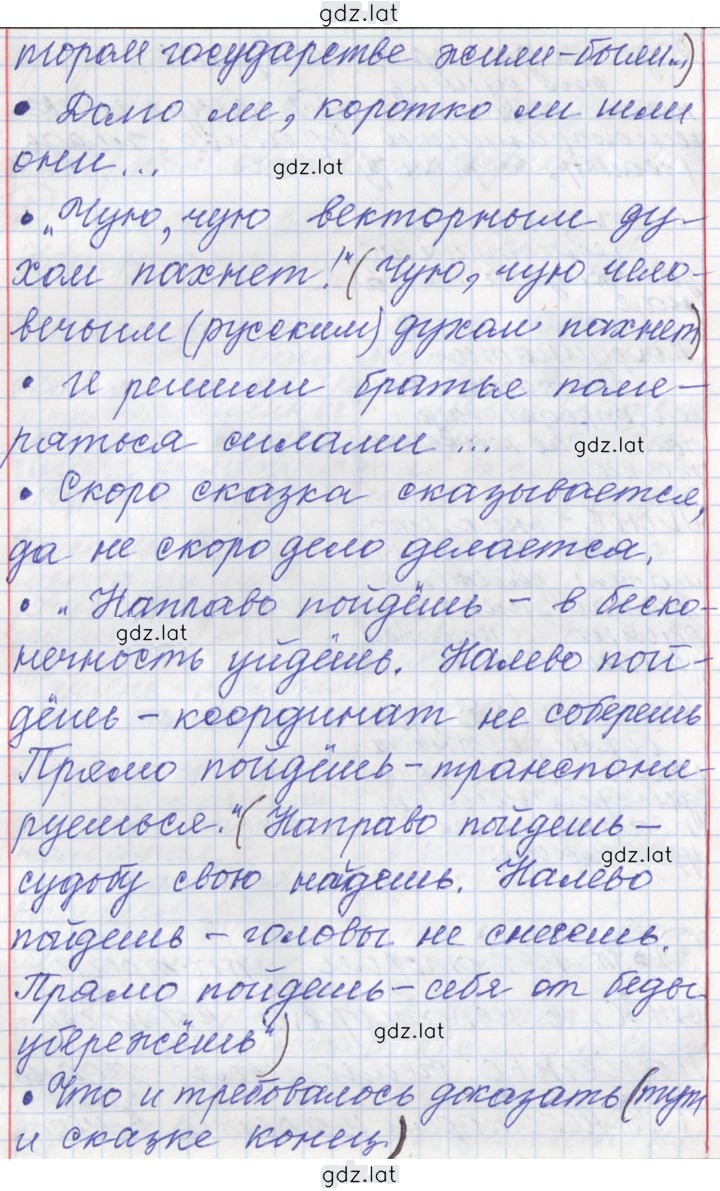 gdz.lat
тором государстве жили-были...)
• Долго ли, коротко ли шли
они...
gdz.lat
• „Чую, чую векторным ду-
хом пахнет!" (Чую, чую чело-
вечьим (русским) духом пахнет)
• И решили братья поме-
раться силами...
gdz.lat
• Скоро сказка сказывается,
да не скоро дело делается.
• „Направо пойдёшь – в беско-
gdz.lat
нечность уйдёшь. Налево пой-
дёшь – координат не соберешь
Прямо пойдёшь – транспони-
руешься." (Направо пойдешь –
gdz.lat
судьбу свою найдешь. Налево
пойдешь – головы не снесешь.
Прямо пойдешь – себя от беды
убережёшь")
gdz.lat
• Что и требовалось доказать (тут
и сказке конец)
gdz.lat